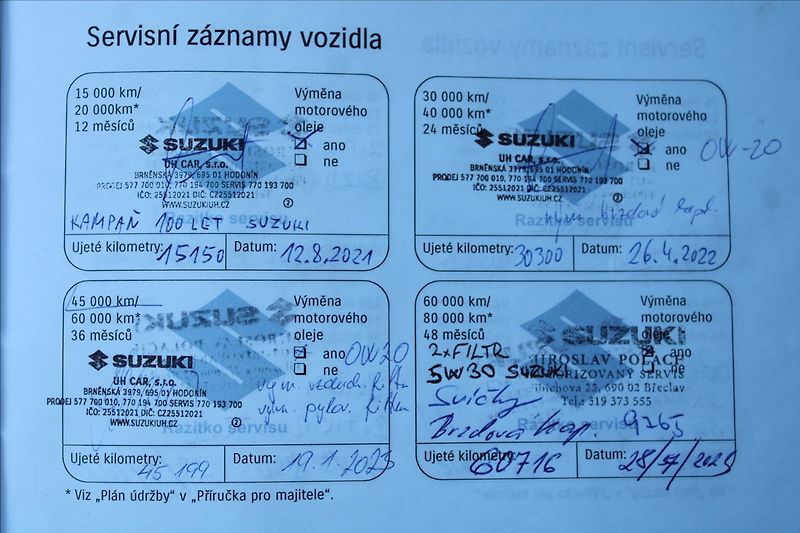 Servisní záznamy vozidla
15 000 km/
20 000km*
12 měsíců
Výměna
motorového
oleje
ano
ne
SUZUKI
UH CAR, s.r.o.
BRNĚNSKÁ 3979, 695 01 HODONÍN
PRODEJ 577 700 010, 770 194 700 SERVIS 770 193 700
IČO: 25512021 DIČ: CZ25512021
WWW.SUZUKIUH.CZ
2
KAMPAŇ 100 LET SUZUKI
Razítko servisu
Ujeté kilometry: 15150
Datum: 12.8.2021
30 000 km/
40 000 km*
24 měsíců
Výměna
motorového
oleje
ano
ne
0W-20
SUZUKI
UH CAR, s.r.o.
BRNĚNSKÁ 3979, 695 01 HODONÍN
PRODEJ 577 700 010, 770 194 700 SERVIS 770 193 700
IČO: 25512021 DIČ: CZ25512021
WWW.SUZUKIUH.CZ
2
Razítko servisu
Ujeté kilometry: 30300
Datum: 26.4.2022
45 000 km/
60 000 km*
36 měsíců
Výměna
motorového
oleje
ano
ne
0W20
SUZUKI
UH CAR, s.r.o.
BRNĚNSKÁ 3979, 695 01 HODONÍN
PRODEJ 577 700 010, 770 194 700 SERVIS 770 193 700
IČO: 25512021 DIČ: CZ25512021
WWW.SUZUKIUH.CZ
2
vým. vzduch. filtru
vým. pylov. filtru
Razítko servisu
Ujeté kilometry: 45 199
Datum: 19.1.2023
60 000 km/
80 000 km*
48 měsíců
Výměna
motorového
oleje
ano
ne
SUZUKI
MIROSLAV POLACH
AUTORIZOVANÝ SERVIS
690 02 Břeclav
Tel.: 519 373 555
2xFILTR
5W30 SUZUKI
Svíčky
Brzdová kap. 9265
Ujeté kilometry: 60716
Datum:
* Viz „Plán údržby“ v „Příručka pro majitele“.